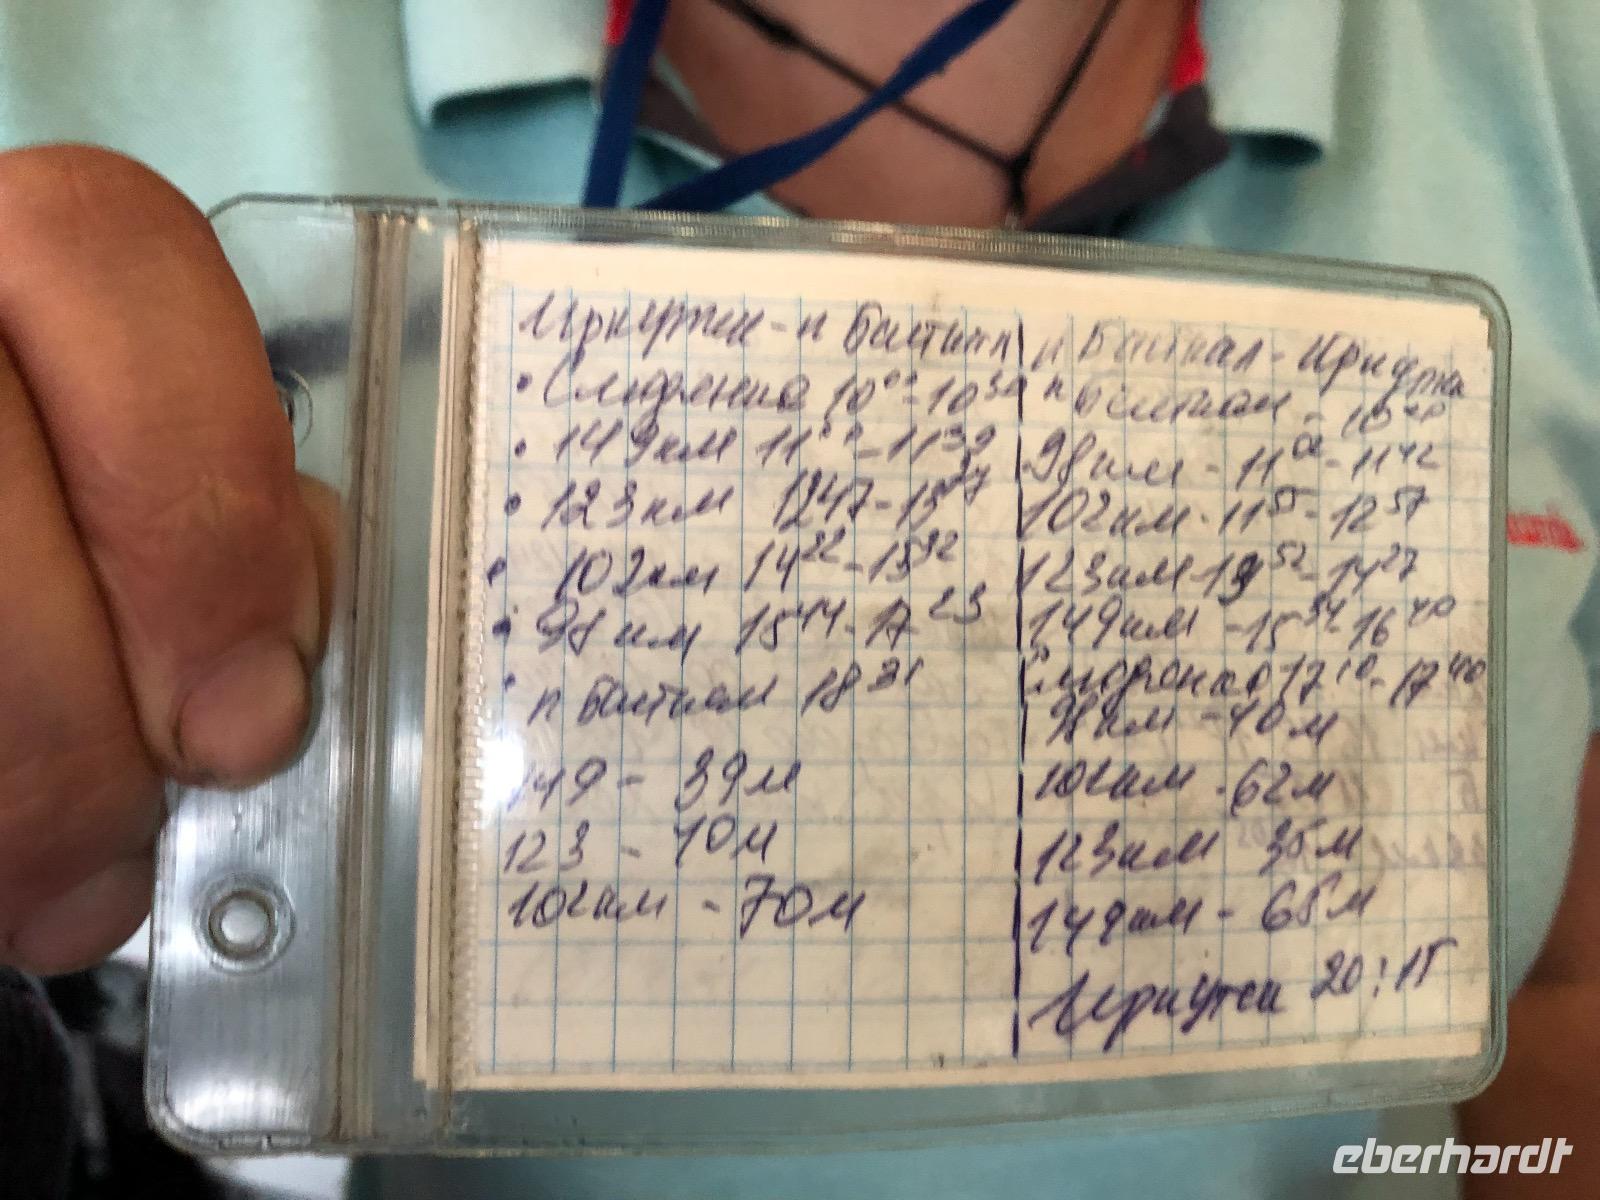 Иркутск - п Байкал
• Слюдянка 10⁰⁰-10³⁰
• 149км 11⁰⁰-11³⁹
• 123км 12⁴⁷-13²⁷
• 102км 14²²-15³²
• 98км 15⁴⁴-17²³
• п Байкал 18³¹
149 - 39м
123 - 40м
102км - 70м
п Байкал - Иркутск
п Байкал - 10⁴⁰
98км - 11⁰²-11⁴²
102км - 11⁵⁵-12⁵⁷
123км-13⁵²-14²⁷
149км -15³⁴-16⁴⁰
Слюдянка 17¹⁰-17⁴⁰
98км - 40м
102км - 62м
123км 35м
149км - 65м
Иркутск 20:15
eberhardt